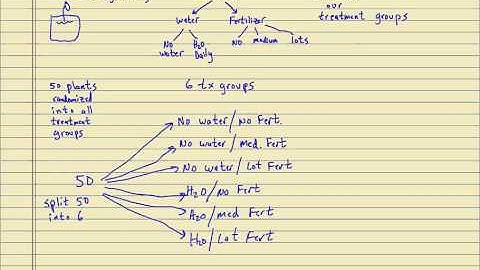 our
treatment groups
water Fertilizer
No water
H2O Daily
No medium lots
50 plants
randomized
into all
treatment
groups
6 tx groups
No water/No Fert.
No water/med. Fert
No water/Lot Fert
50
H2O/No Fert
split 50
into 6
H2O/med Fert
H2O/Lot Fert